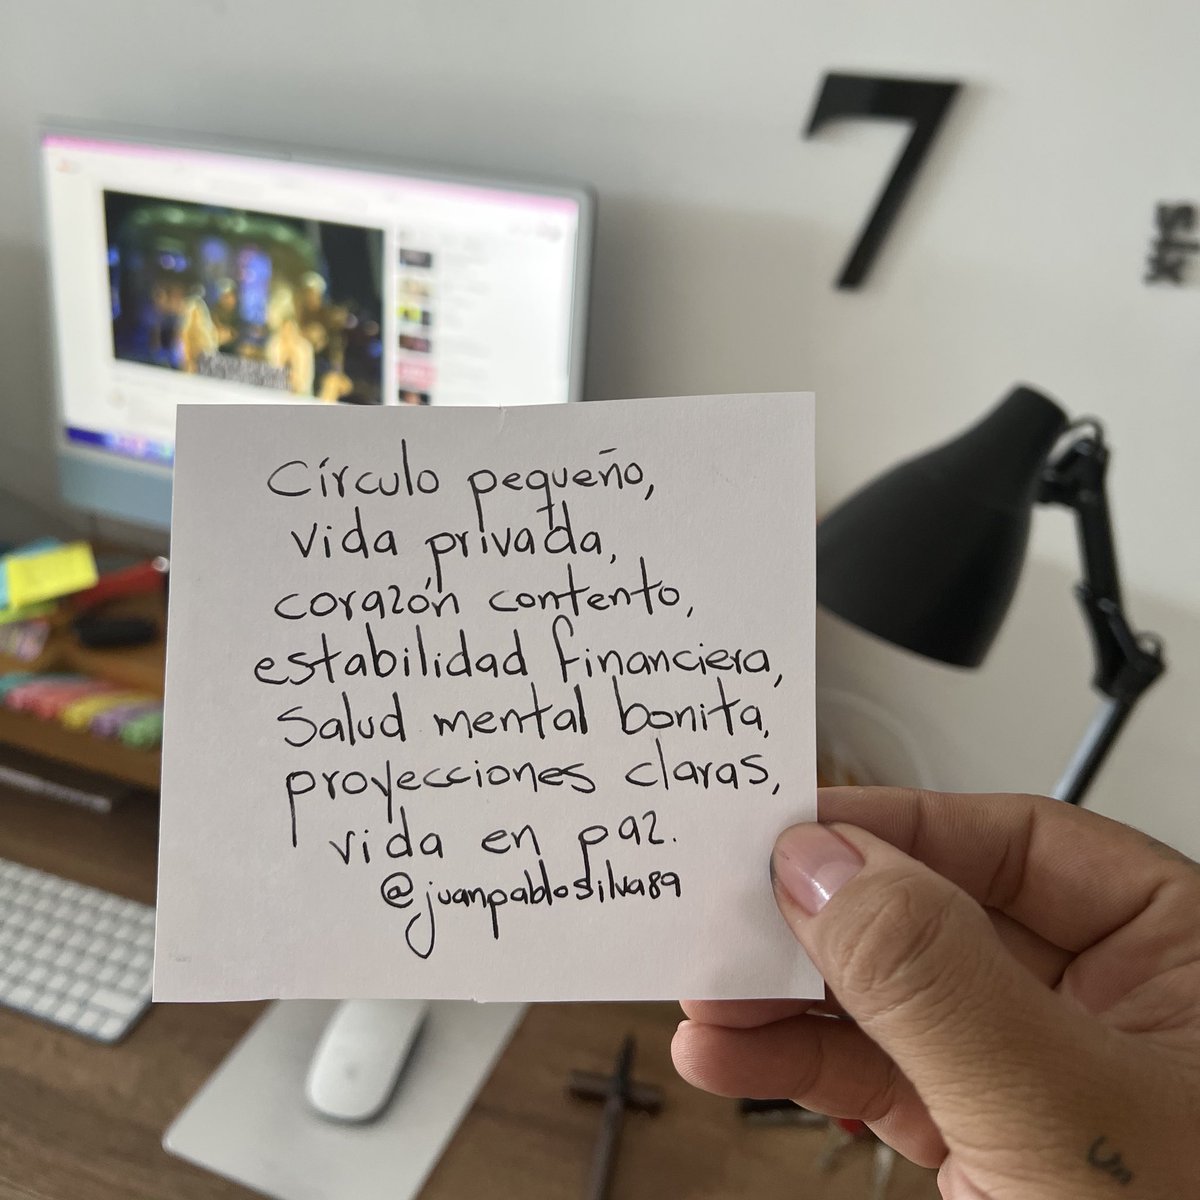 Círculo pequeño,
vida privada,
corazón contento,
estabilidad financiera,
Salud mental bonita,
proyecciones claras,
vida en paz.
@juanpablosilva89
7